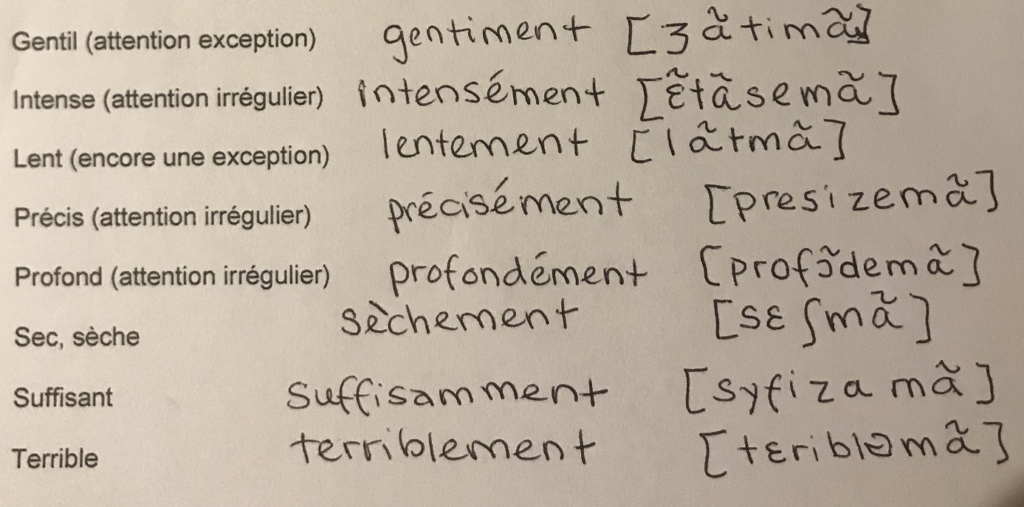 Gentil (attention exception) gentiment [ʒãtimã]
Intense (attention irrégulier) intensément [ɛ̃tãsemã]
Lent (encore une exception) lentement [lãtmã]
Précis (attention irrégulier) précisément [presizemã]
Profond (attention irrégulier) profondément [profɔ̃demã]
Sec, sèche sèchement [sɛʃmã]
Suffisant suffisamment [syfizamã]
Terrible terriblement [tɛribləmã]